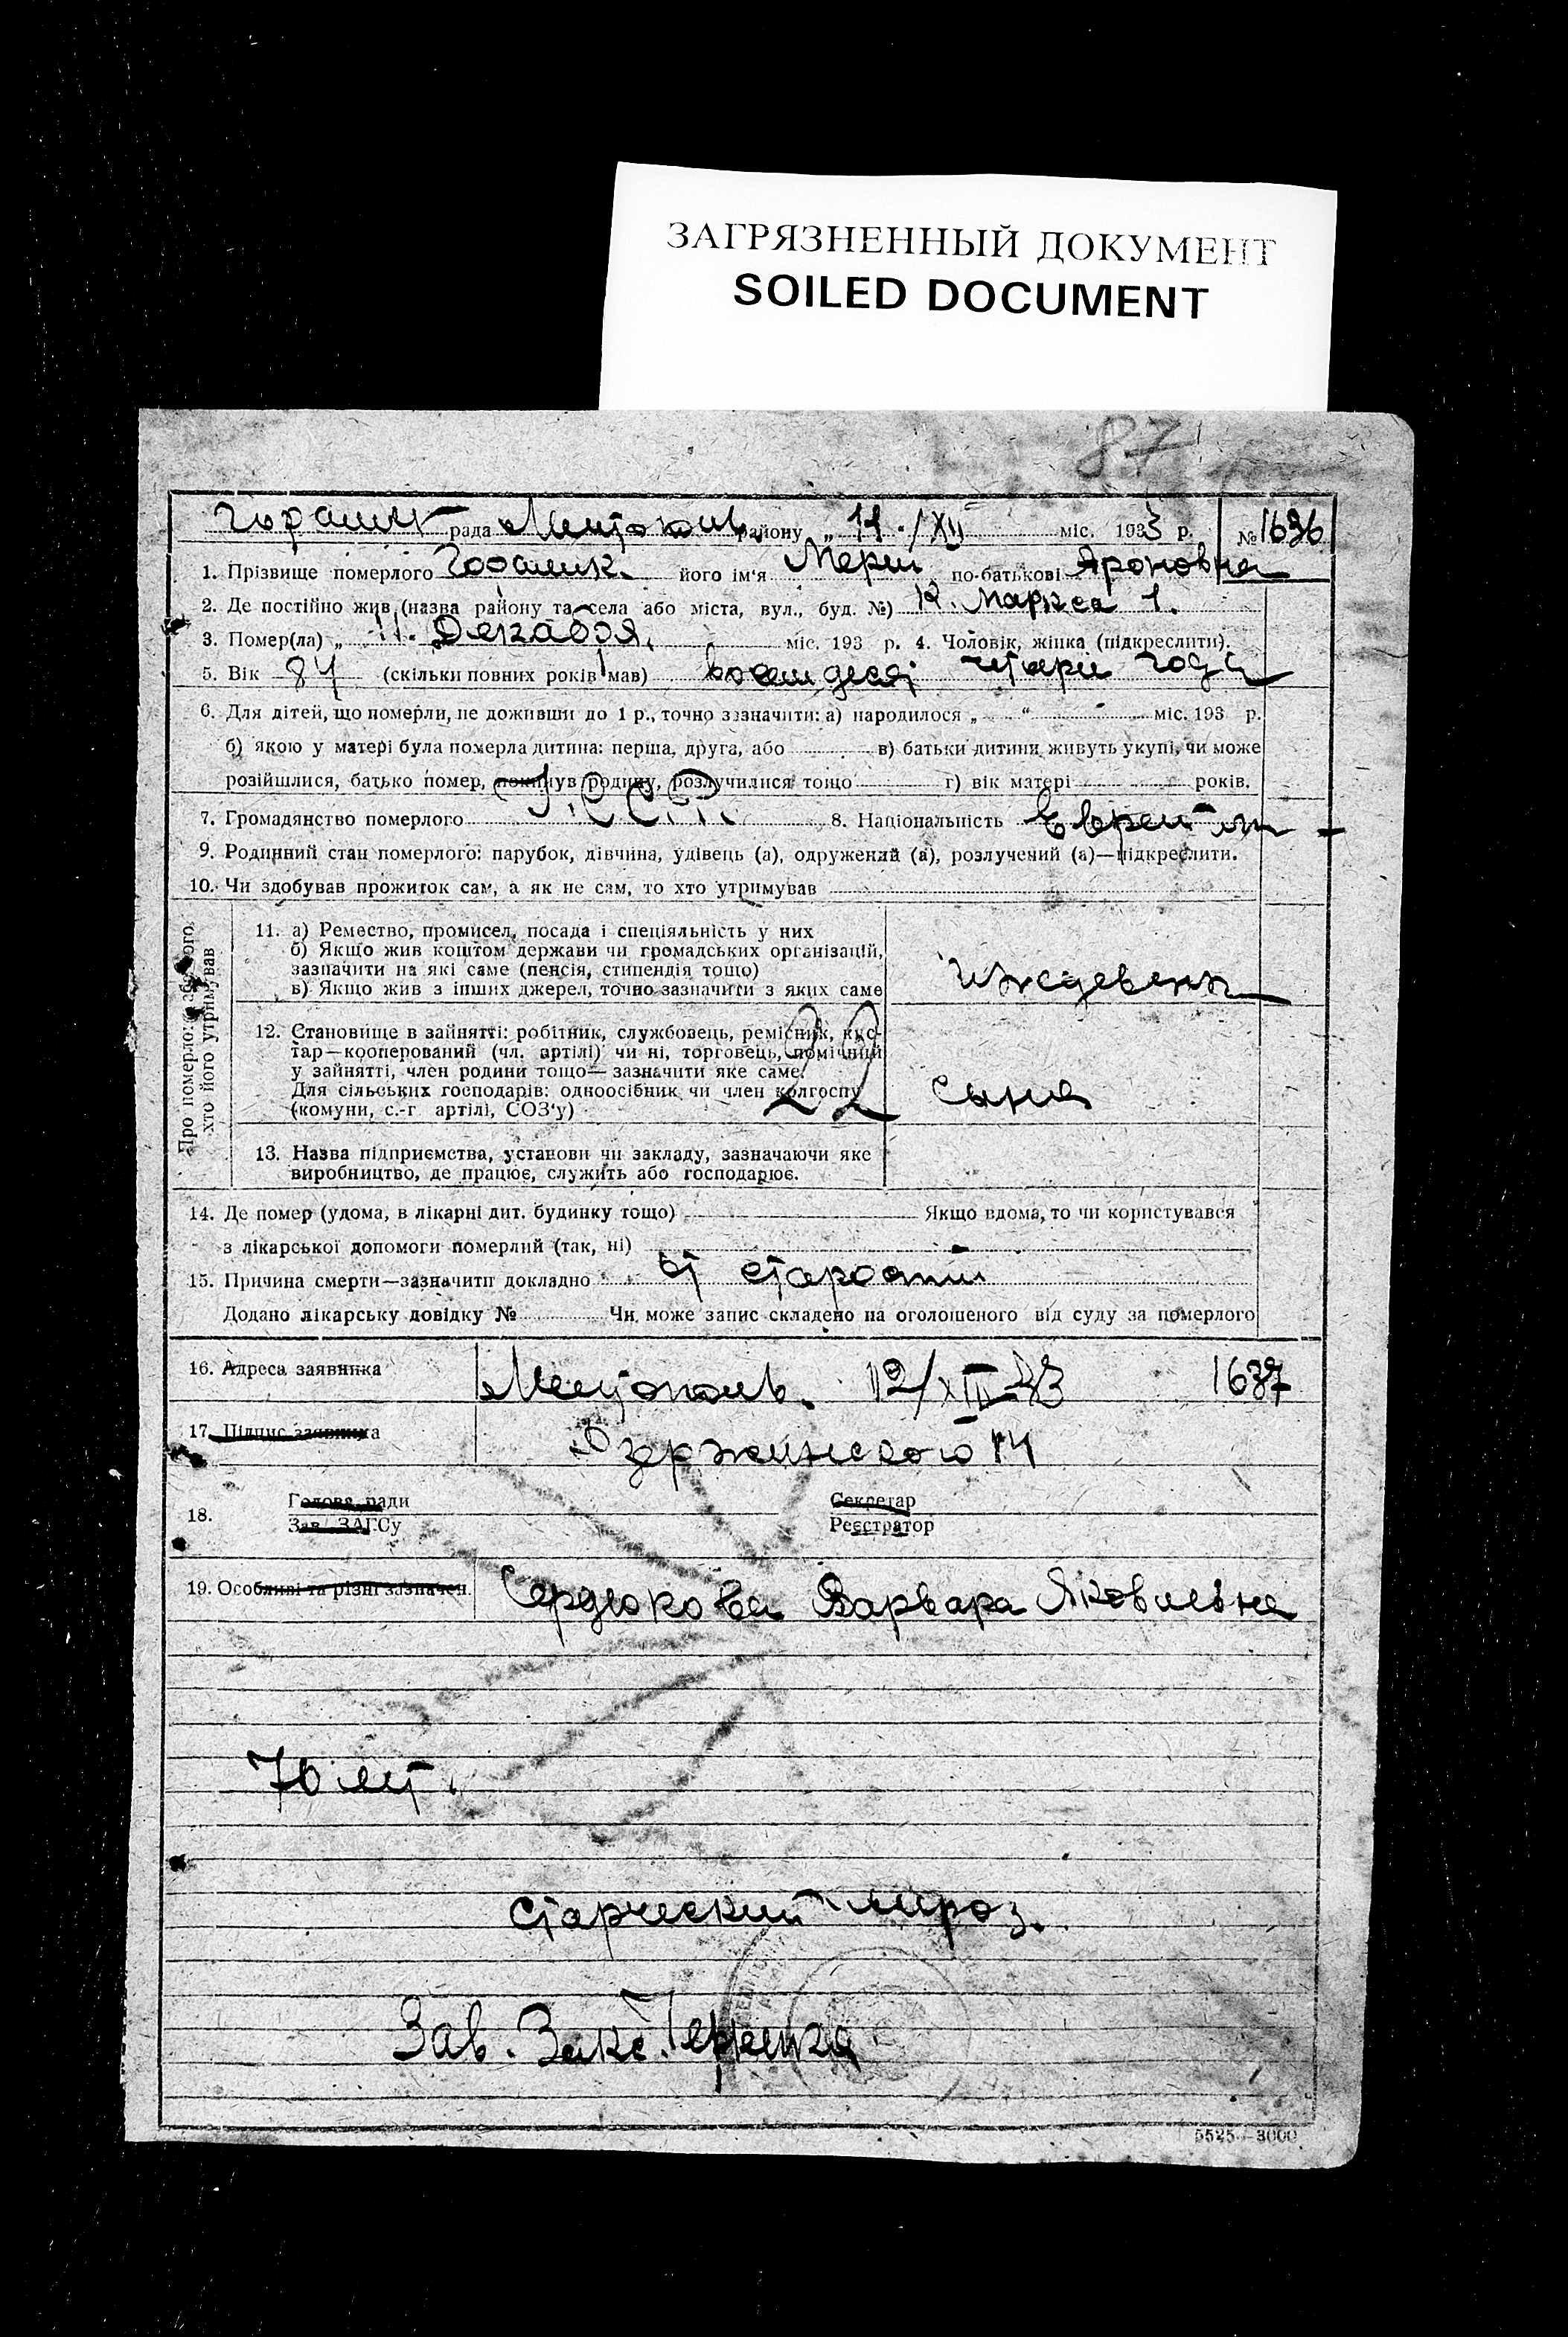 ЗАГРЯЗНЕННЫЙ ДОКУМЕНТ
SOILED DOCUMENT
87
рада Мелітополь району „ 11 " / XII міс. 1933 р. № 1636
1. Прізвище померлого його ім'я Мери по-батькові Ароновна
2. Де постійно жив (назва району та села або міста, вул., буд. №) К. Маркса 1.
3. Помер(ла) „ 11. Декабря, міс. 193 р. 4. Чоловік, жінка (підкреслити).
5. Вік 84 (скільки повних років мав) восемдесят четыри года
6. Для дітей, що померли, не доживши до 1 р., точно зазначити: а) народилося „ “ міс. 193 р.
б) якою у матері була померла дитина: перша, друга, або в) батьки дитини живуть укупі, чи може
розійшлися, батько помер, покинув родину, розлучилися тощо г) вік матері років.
7. Громадянство померлого У.С.С.Р. 8. Національність
9. Родинний стан померлого: парубок, дівчина, удівець (а), одружений (а), розлучений (а)—підкреслити.
10. Чи здобував прожиток сам, а як не сам, то хто утримував
Про померло: а або того, хто його утримував
11. а) Ремество, промисел, посада і спеціяльність у них
б) Якщо жив коштом держави чи громадських організацій,
зазначити на які саме (пенсія, стипендія тощо)
в) Якщо жив з інших джерел, точно зазначити з яких саме
Иждевень
12. Становище в зайнятті: робітник, службовець, ремісник, кус-
тар—кооперований (чл. артілі) чи ні, торговець, помічний
у зайнятті, член родини тощо—зазначити яке саме.
Для сільських господарів: одноосібник чи член колгоспу
(комуни, с.-г артілі, СОЗ'у)
22
сына
13. Назва підприємства, установи чи закладу, зазначаючи яке
виробництво, де працює, служить або господарює.
14. Де помер (удома, в лікарні дит. будинку тощо) Якщо вдома, то чи користувався
з лікарської допомоги померлий (так, ні)
15. Причина смерти—зазначити докладно от старости
Додано лікарську довідку № Чи може запис складено на оголошеного від суду за померлого
16. Адреса заявника Мелитополь. 12/XII-33 1637
17. Підпис заявника Дзержинского 14
18. Голова ради Секретар
Зав. ЗАГСу Реєстратор
19. Особливі та різні зазначен. Сердюкова Варвара Яковлевна
70 лет.
старческий мароз.
Зав. Загс.
5525—3000